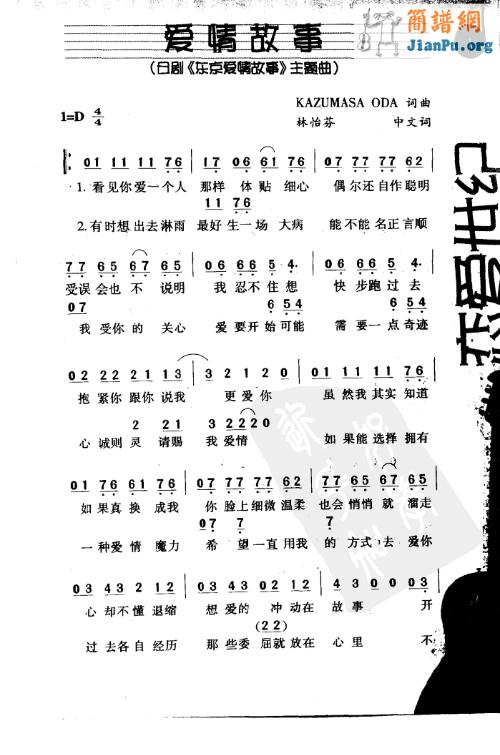 簡譜網
JianPu.org
爱情故事
(日剧《东京爱情故事》主题曲)
KAZUMASA ODA 词曲
1=D 4/4
林怡芬 中文词
01 11 11 76 | 17 06 61 76 | 07 77 77 62 |
1.看见你爱一个人 那样 体贴 细心 偶尔还自作聪明
11 76
2.有时想出去淋雨 最好生一场 大病 能不能名正言顺
77 65 67 65 | 06 66 5 4· | 06 66 5 4· |
受误会也 不 说明 我忍不住想 快步跑过去
07 6 54 6 54
我 受你的 关心 爱要开始可能 需要一点奇迹
02 22 21 13 | 3 2 1 2 0 | 01 11 11 76 |
抱紧你跟你说我 更爱你 虽然我其实知道
2 21 3 2220
心诚则灵 请赐 我爱情 如果能选择拥有
01 76 61 65 | 07 77 77 62 | 77 65 67 65 |
如果真换成我 你脸上细微温柔 也会悄悄就溜走
07 7 7
一种爱情魔力 希望一直用我 的方式去爱你
03 43 21 12 | 03 43 21 12 | 4 3 0 0 03 |
心却不懂退缩 想爱的 冲动在 故事 开
(22)
过去各自经历 那些委屈就放在 心里 不
恋爱世纪